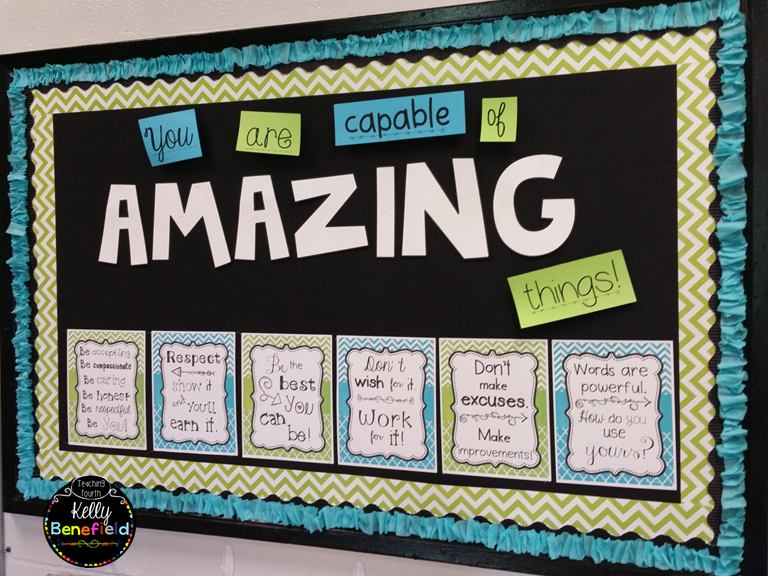 You are capable of
AMAZING
things!
Be accepting
Be compassionate
Be caring
Be honest
Be respectful
Be You!
Respect
show it
and you'll
earn it.
Be the
best
you
can
be!
Don't
wish for it.
Work
for it!
Don't
make
excuses.
Make
improvements!
Words are
powerful.
How do you
use
yours?
Teaching
fourth
Kelly
Benefield